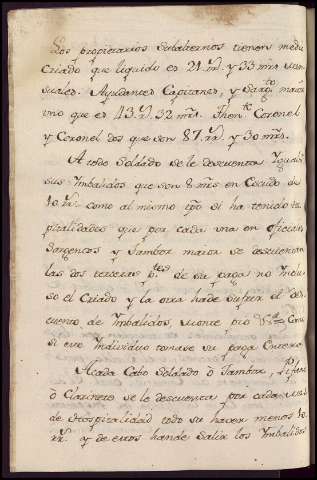 Los propietarios subalternos tienen medio
criado que liquido es 21 r.s y 33 mrs. men
suales. Ayudantes Capitanes, y Sarg.to maior
uno que es 43 r.s 32 mrs. Then.te Coronel
y Coronel dos que son 87 r.s y 30 mrs.
A todo Soldado se le descuenta
sus Imbalidos que son 8 mrs en Escudo de
10 r.s como al mismo tpo si ha tenido
pitalidades que por cada una en oficiar
Sargentos y Tambor maior se descuentan
las dos terceras p.tes de su paga no Inclu
so el Criado y la otra ha de sufrir el des
cuento de Imbalidos,
si este Individuo tomase su paga Entera.
A cada Cabo Soldado ò Tambor, Pifano
ò Clarinete se le descuenta por cada una
de Hospitalidad todo su haver menos 10
r.s y de estos han de salir los Imbalidos